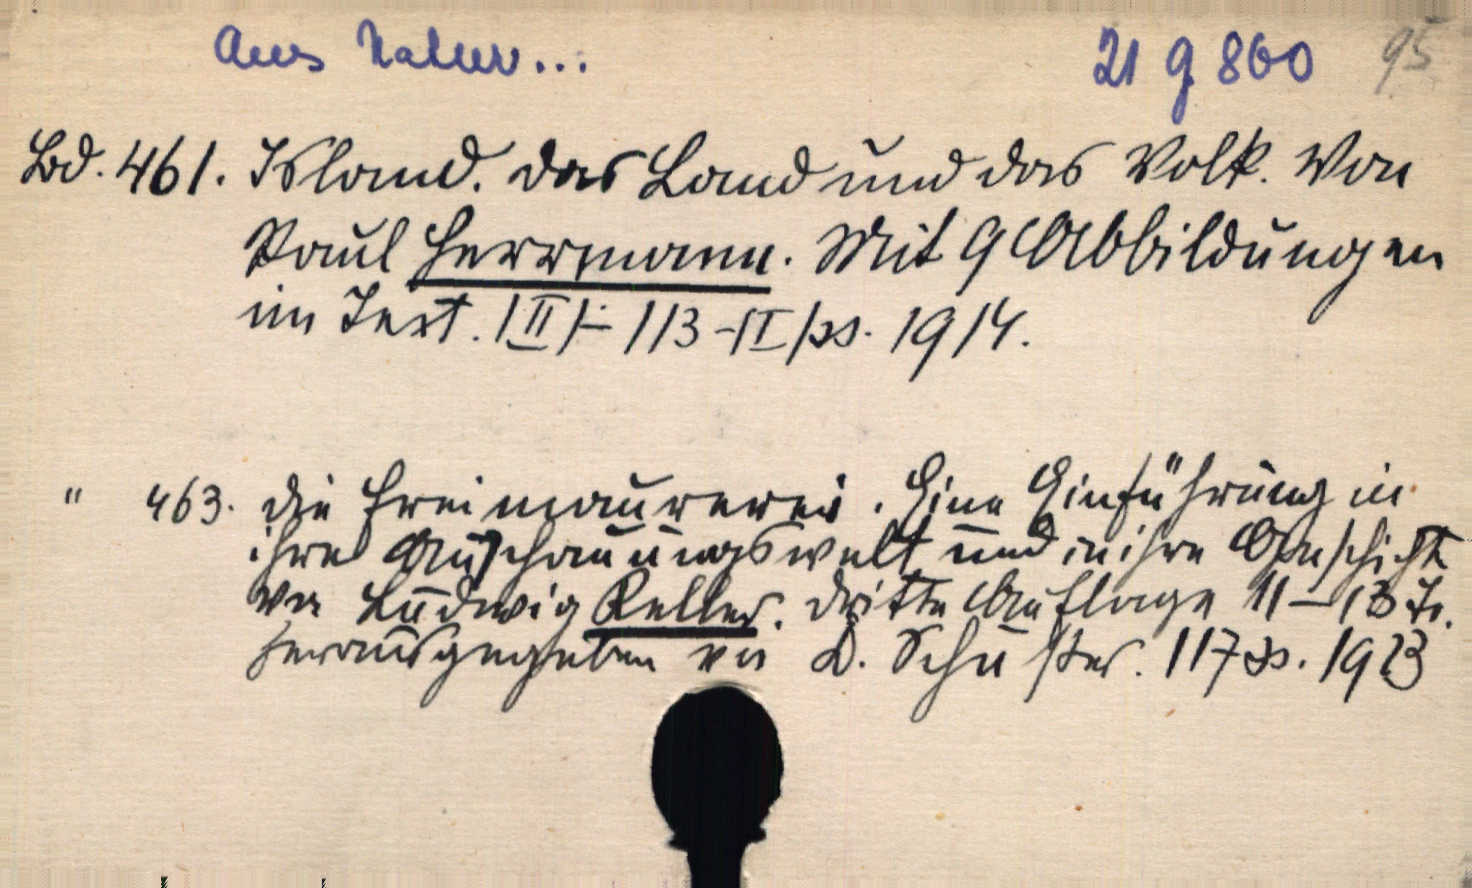 Aus Natur... 21 g 860 95
Bd. 461. Island. Das Land und das Volk. Von
Paul Herrmann. Mit 9 Abbildungen
im Text. |II|-113-|I|SS. 1914.
" 463. Die Freimaurerei. Eine Einführung in
ihre Anschauungswelt und in ihre Geschichte
von Ludwig Keller. Dritte Auflage 11-13 Ts.
herausgegeben von D. Schuster. 117 SS. 1923